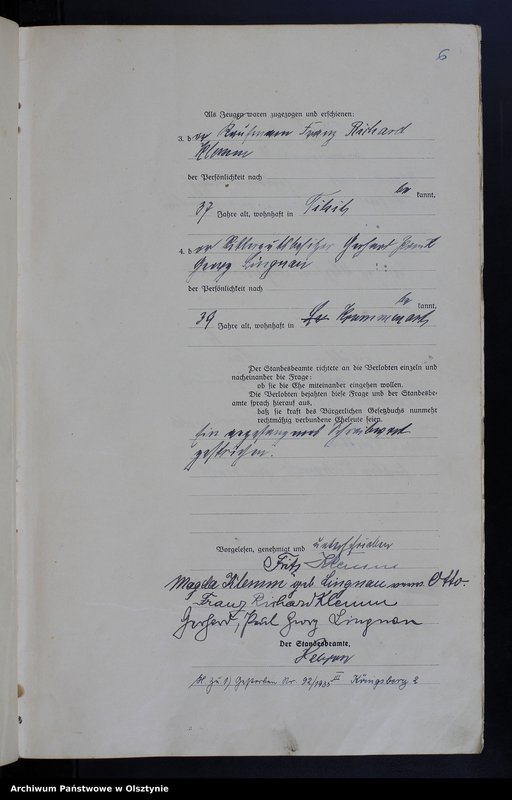 6
Als Zeugen waren zugezogen und erschienen:
3. der Kaufmann Franz Richard
Klemm
der Persönlichkeit nach
be kannt,
37 Jahre alt, wohnhaft in Tilsit
4. der Gerhard Paul
Georg Lingnau
der Persönlichkeit nach
be kannt,
39 Jahre alt, wohnhaft in
Der Standesbeamte richtete an die Verlobten einzeln und
nacheinander die Frage:
ob sie die Ehe miteinander eingehen wollen.
Die Verlobten bejahten diese Frage und der Standesbe-
amte sprach hierauf aus,
daß sie kraft des Bürgerlichen Gesetzbuchs nunmehr
rechtmäßig verbundene Eheleute seien.
Ein
gestrichen.
Vorgelesen, genehmigt und unterschrieben
Fritz Klemm
Magda Klemm geb Lingnau verw. Otto.
Franz Richard Klemm
Gerhard, Paul Georg Lingnau
Der Standesbeamte,
zu Gestorben Nr. 92/1935 III Königsberg
Archiwum Państwowe w Olsztynie